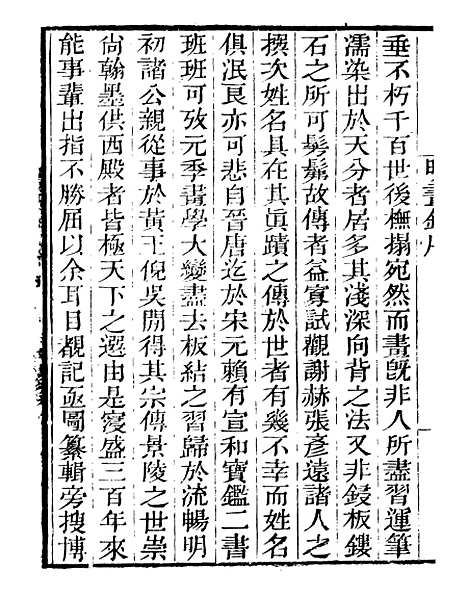 垂不朽千百世後橅搨宛然而畫旣非人所盡習運筆
濡染出於天分者居多其淺深向背之法又非鋟板鏤
石之所可髣髴故傳者益寡試觀謝赫張彥遠諸人之
撰次姓名具在其眞蹟之傳於世者有幾不幸而姓名
俱泯良亦可悲自晉唐迄於宋元賴有宣和寶鑑二書
班班可攷元季畵學大變盡去板結之習歸於流暢明
初諸公親從事於黃王倪吳閒得其宗傳景陵之世崇
尙翰墨供西殿者皆極天下之選由是寖盛三百年來
能事輩出指不勝屈以余耳目覩記亟圖纂輯旁搜博